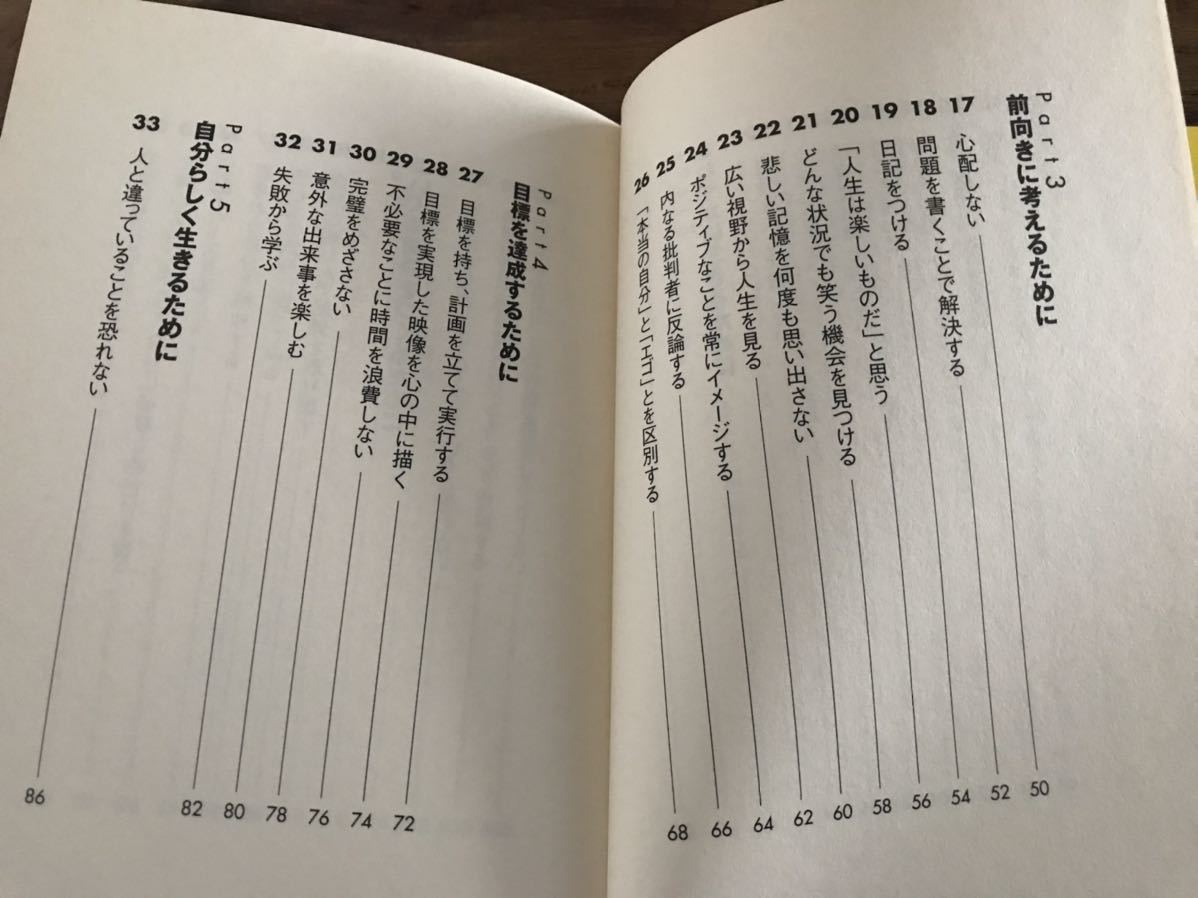 Part3
前向きに考えるために
17 心配しない 50
18 問題を書くことで解決する 52
19 日記をつける 54
20 「人生は楽しいものだ」と思う 56
21 どんな状況でも笑う機会を見つける 58
22 悲しい記憶を何度も思い出さない 60
23 広い視野から人生を見る 62
24 ポジティブなことを常にイメージする 64
25 内なる批判者に反論する 66
26 「本当の自分」と「エゴ」とを区別する 68
Part4
目標を達成するために
27 目標を持ち、計画を立てて実行する 72
28 目標を実現した映像を心の中に描く 74
29 不必要なことに時間を浪費しない 76
30 完璧をめざさない 78
31 意外な出来事を楽しむ 80
32 失敗から学ぶ 82
Part5
自分らしく生きるために
33 人と違っていることを恐れない 86